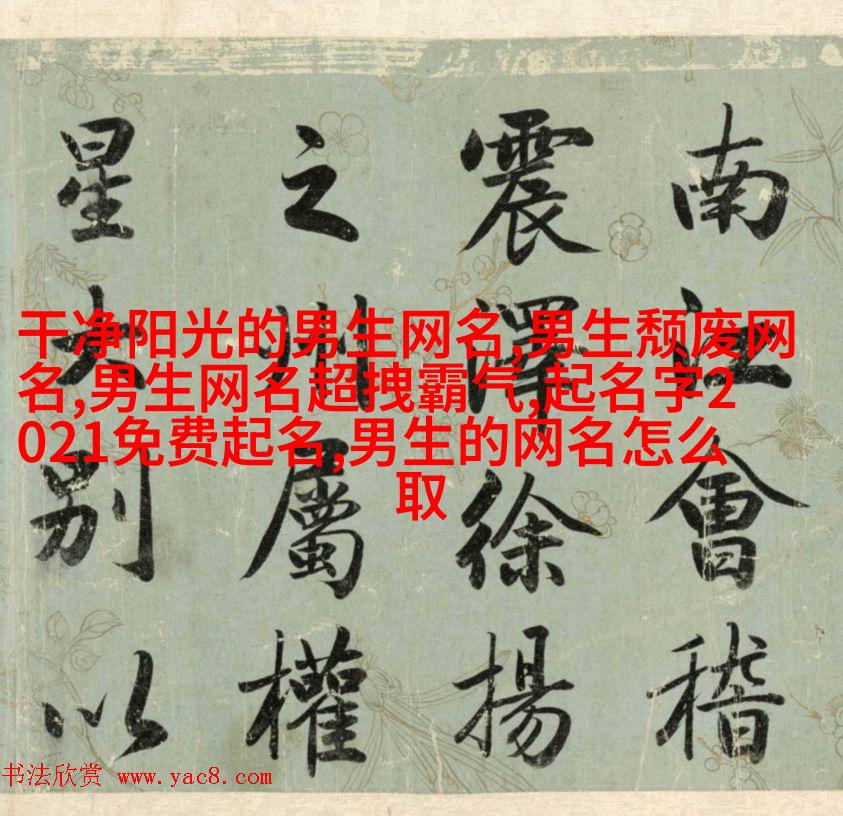 南江會稽
震澤徐揚
之州屬權
星大别以
干净阳光的男生网名,男生颓废网
名,男生网名超拽霸气,起名字2
021免费起名,男生的网名怎么
取
书法欣赏 www.yac8.com